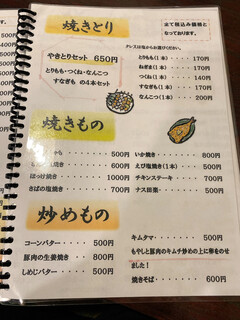 焼きとり
全て税込み価格と
なっております。
タレ又は塩からお選びください。
やきとりセット 650円
とりもも・つくね・なんこつ
すなぎも の4本セット
とりもも(1本)・・・170円
ねぎま(1本)・・・170円
つくね(1本)・・・140円
すなぎも(1本)・・・170円
なんこつ(1本)・・・200円
焼きもの
500円
600円
ほっけ焼き・・・1300円
さばの塩焼き・・・700円
いか焼き・・・800円
えび塩焼き(1本)・・・500円
チキンステーキ・・・700円
ナス田楽・・・500円
炒めもの
コーンバター・・・500円
豚肉の生姜焼き・・・800円
しめじバター・・・500円
キムタマ・・・500円
もやしと豚肉のキムチ炒めの上に卵をのせ
ました!
焼きそば・・・600円